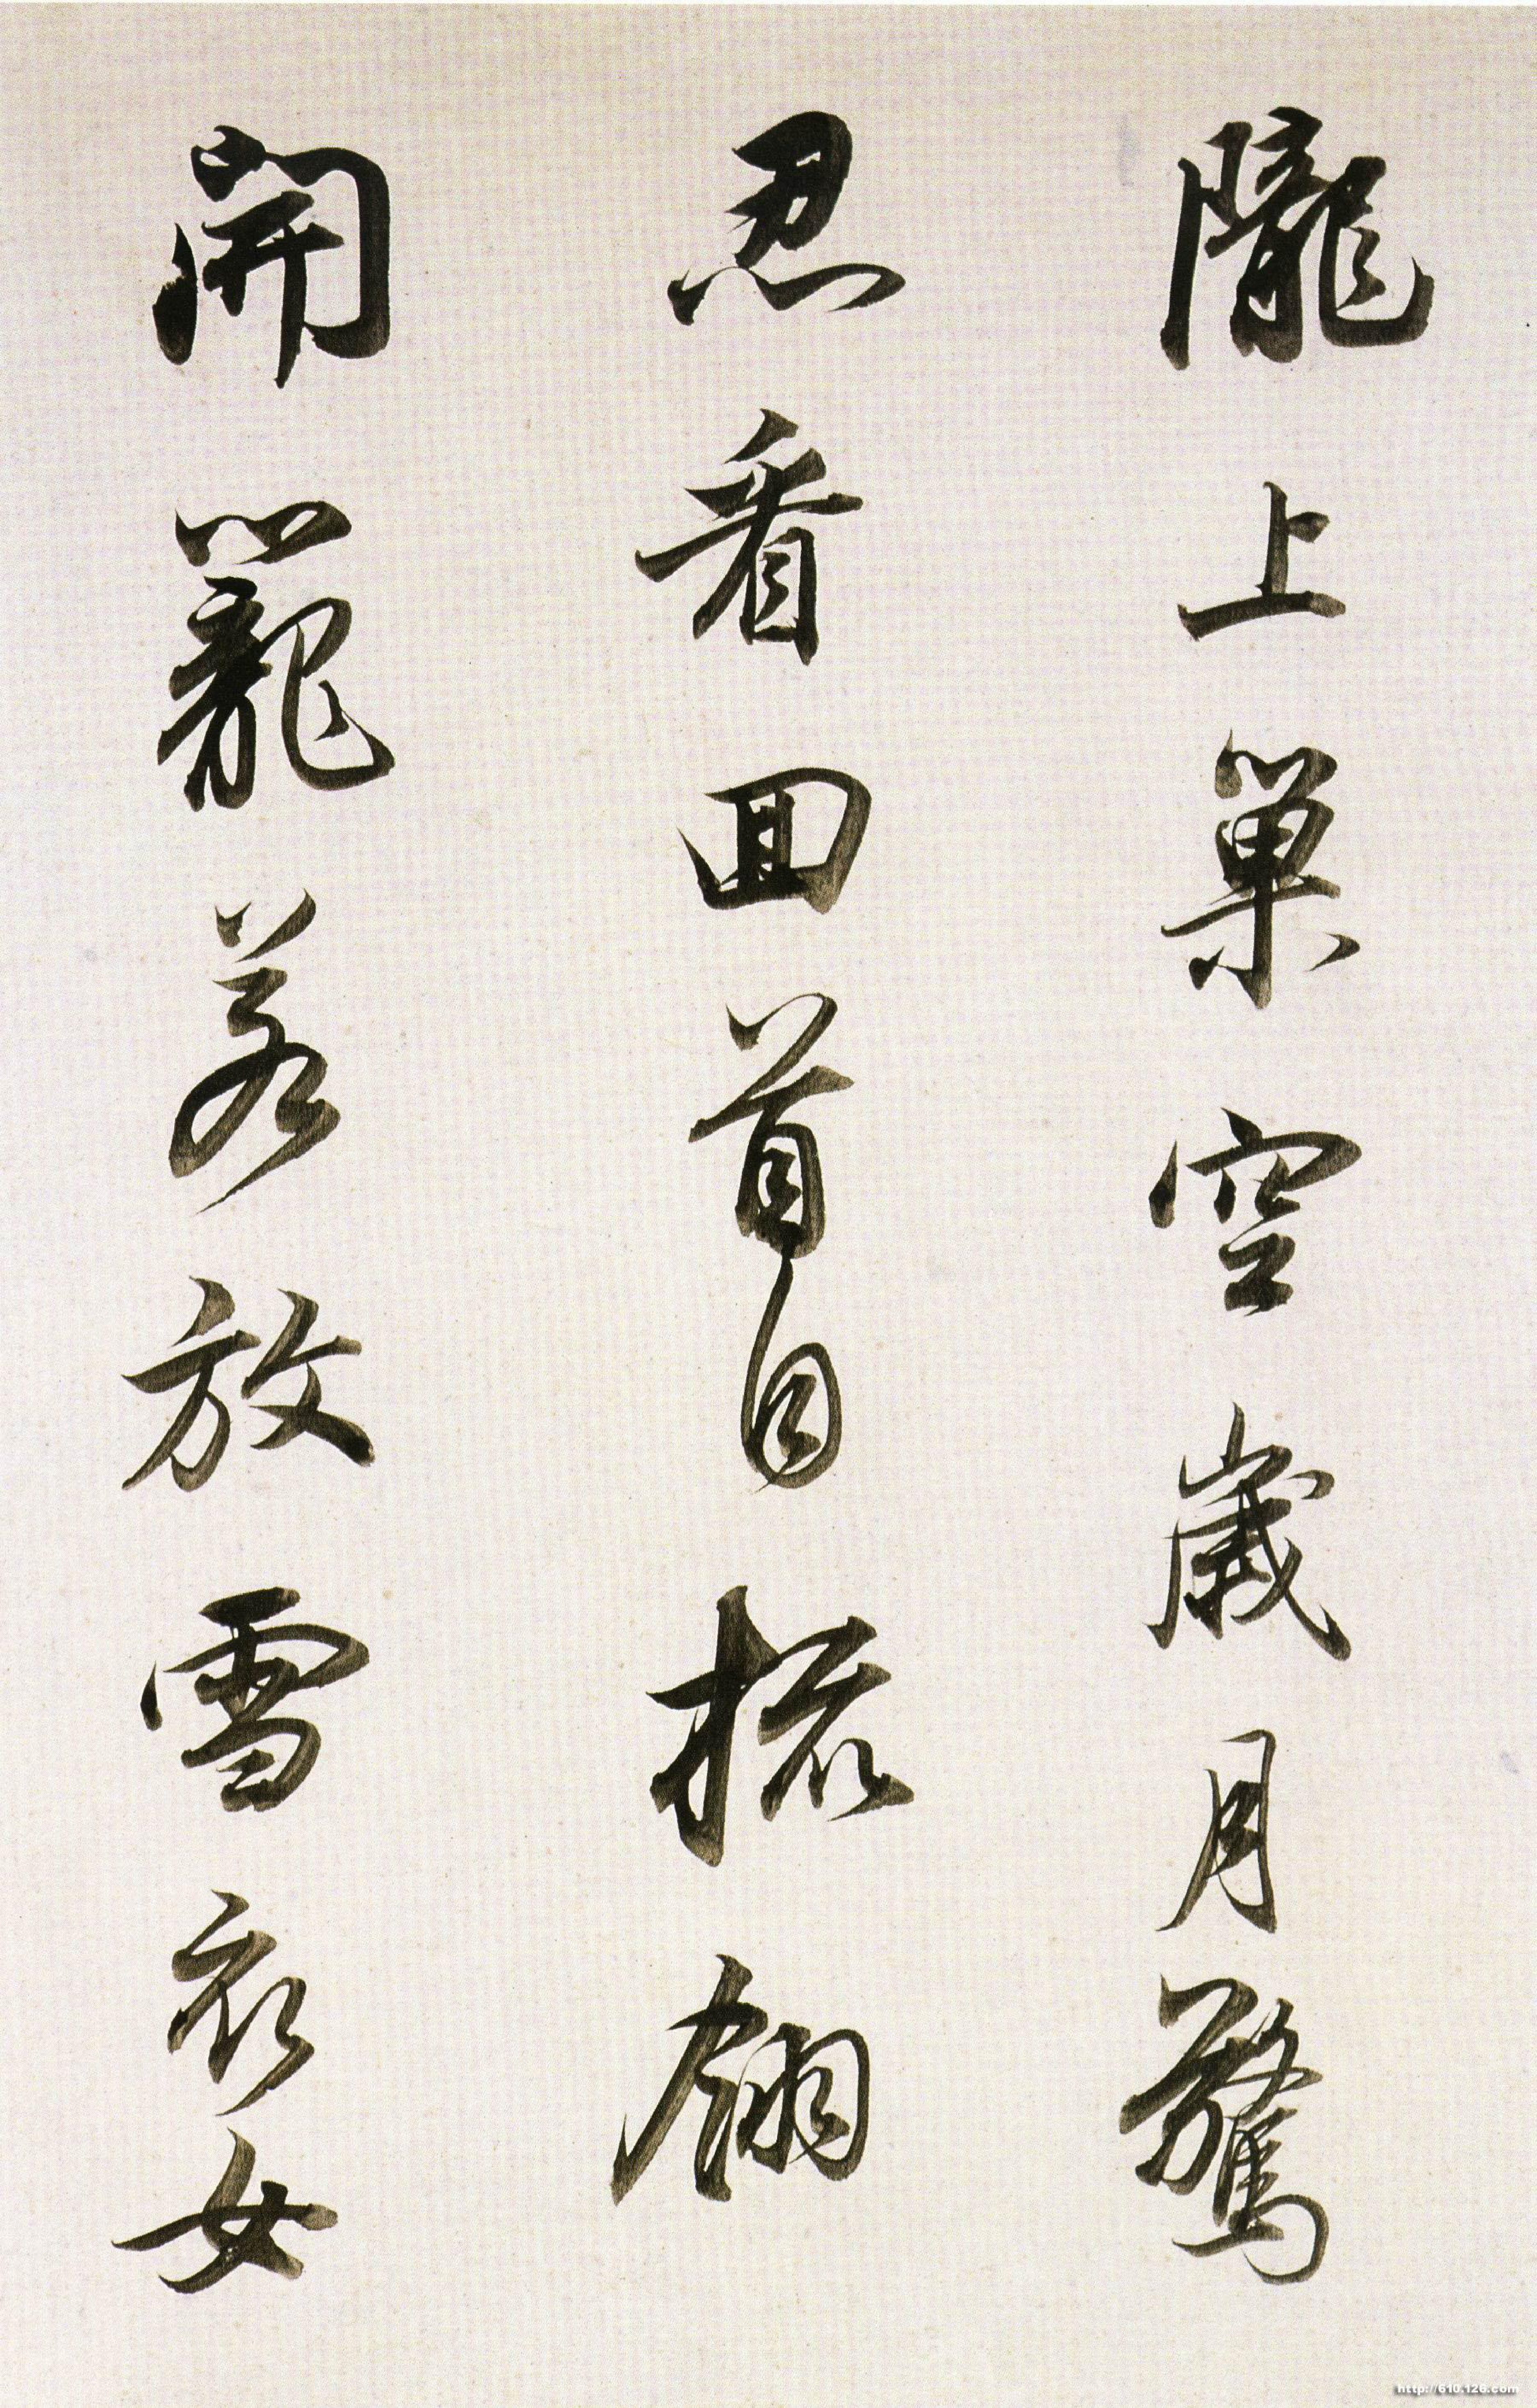 隴上巢空歲月驚
忍看回首自梳翎
開籠若放雪衣女
http://610.126.com